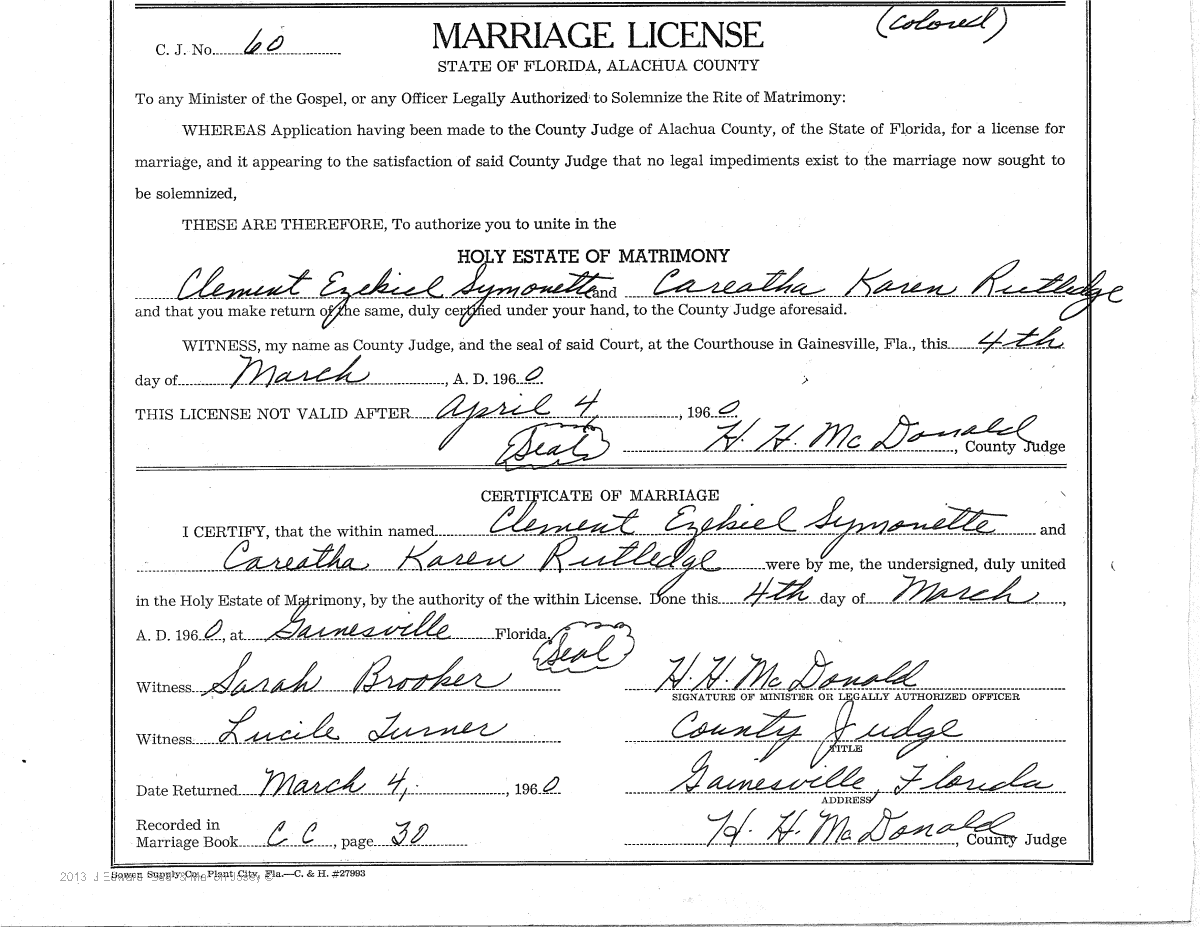 (colored)
C. J. No. 60
MARRIAGE LICENSE
STATE OF FLORIDA, ALACHUA COUNTY
To any Minister of the Gospel, or any Officer Legally Authorized to Solemnize the Rite of Matrimony:
WHEREAS Application having been made to the County Judge of Alachua County, of the State of Florida, for a license for
marriage, and it appearing to the satisfaction of said County Judge that no legal impediments exist to the marriage now sought to
be solemnized,
THESE ARE THEREFORE, To authorize you to unite in the
HOLY ESTATE OF MATRIMONY
Clement Ezekiel Symonette and Careatha Karen Rutledge
and that you make return of the same, duly certified under your hand, to the County Judge aforesaid.
WITNESS, my name as County Judge, and the seal of said Court, at the Courthouse in Gainesville, Fla., this 4th
day of March, A. D. 1960.
THIS LICENSE NOT VALID AFTER April 4, , 1960.
(Seal) H. H. McDonald, County Judge
CERTIFICATE OF MARRIAGE
I CERTIFY, that the within named Clement Ezekiel Symonette and
Careatha Karen Rutledge were by me, the undersigned, duly united
in the Holy Estate of Matrimony, by the authority of the within License. Done this 4th day of March,
A. D. 1960, at Gainesville Florida.
(Seal)
Witness Sarah Brooker H. H. McDonald
SIGNATURE OF MINISTER OR LEGALLY AUTHORIZED OFFICER
Witness Lucile Turner County Judge
TITLE
Date Returned March 4, , 1960 Gainesville, Florida
ADDRESS
Recorded in
Marriage Book C C, page 30 H. H. McDonald, County Judge
2013 J Edward
Bower Supply Co., Plant City, Fla.—C. & H. #27993